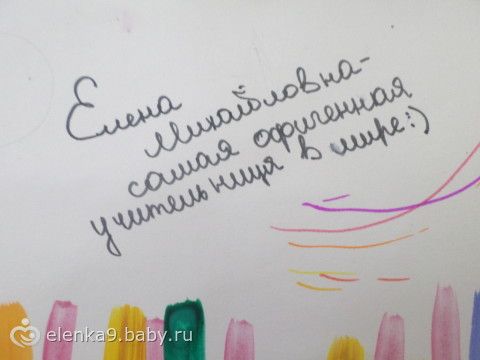 Елена
Михайловна-
самая офигенная
учительница в мире:)
elenka9.baby.ru